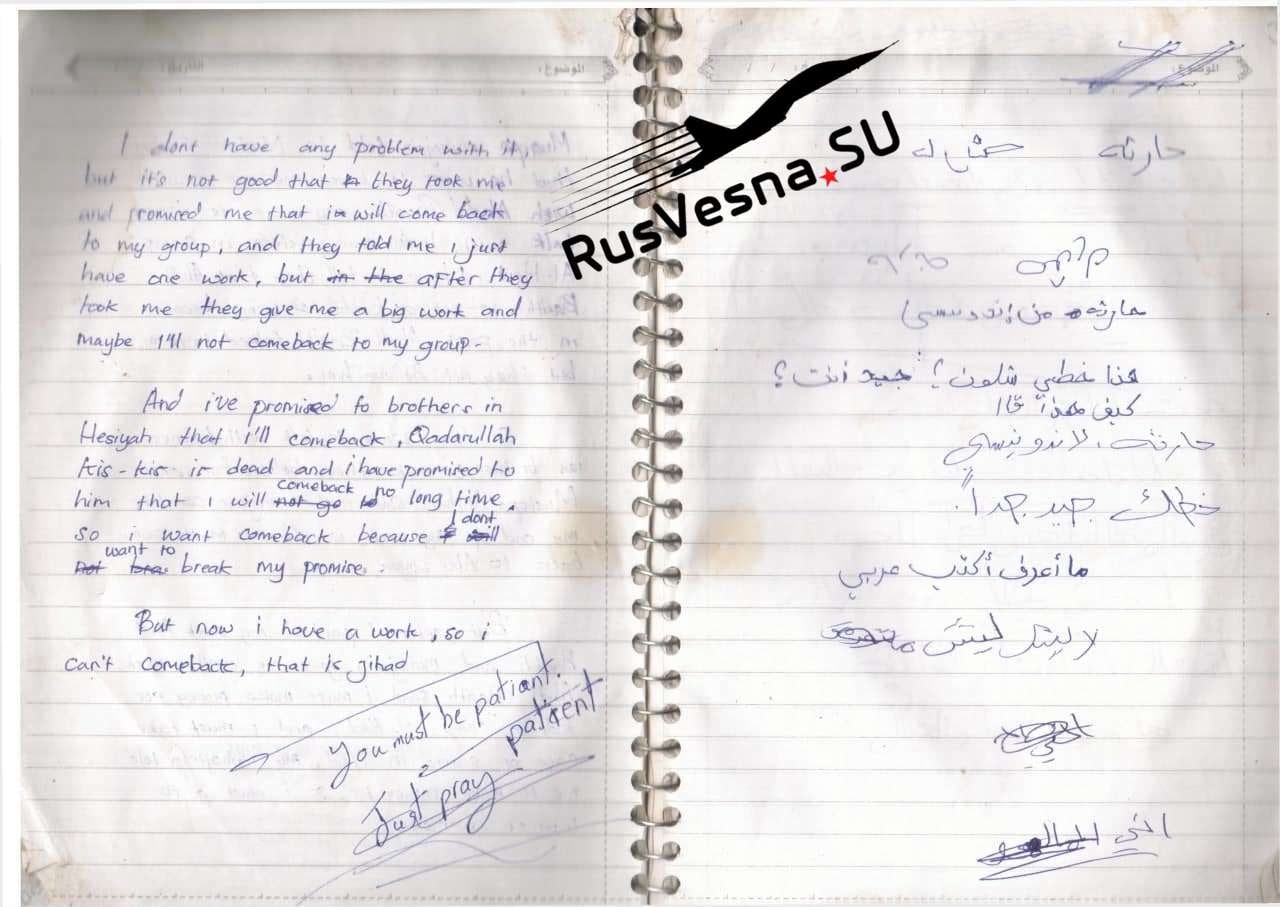 I dont have any problem with it,
but it's not good that they took me
and promised me that i will come back
to my group, and they told me i just
have one work, but in the after they
took me they give me a big work and
maybe I'll not comeback to my group.
And i've promised to brothers in
Hesiyah that i'll comeback, Qadarullah
kis-kis is dead and i have promised to
him that i will not go comeback no long time,
so i want comeback because I dont
not want to break my promise.
But now i have a work, so i
can't comeback, that is jihad
You must be patiant.
patient
Just pray
RusVesna.SU
الموضوع:
التاريخ:
الموضوع:
حارثه
حارثه من إندونيسي
هذا خطي شلون؟ جيد أنت؟
كيف هذا
حارثه الاندونيسي
خطك جيد جداً
ما أعرف أكتب عربي
ليش